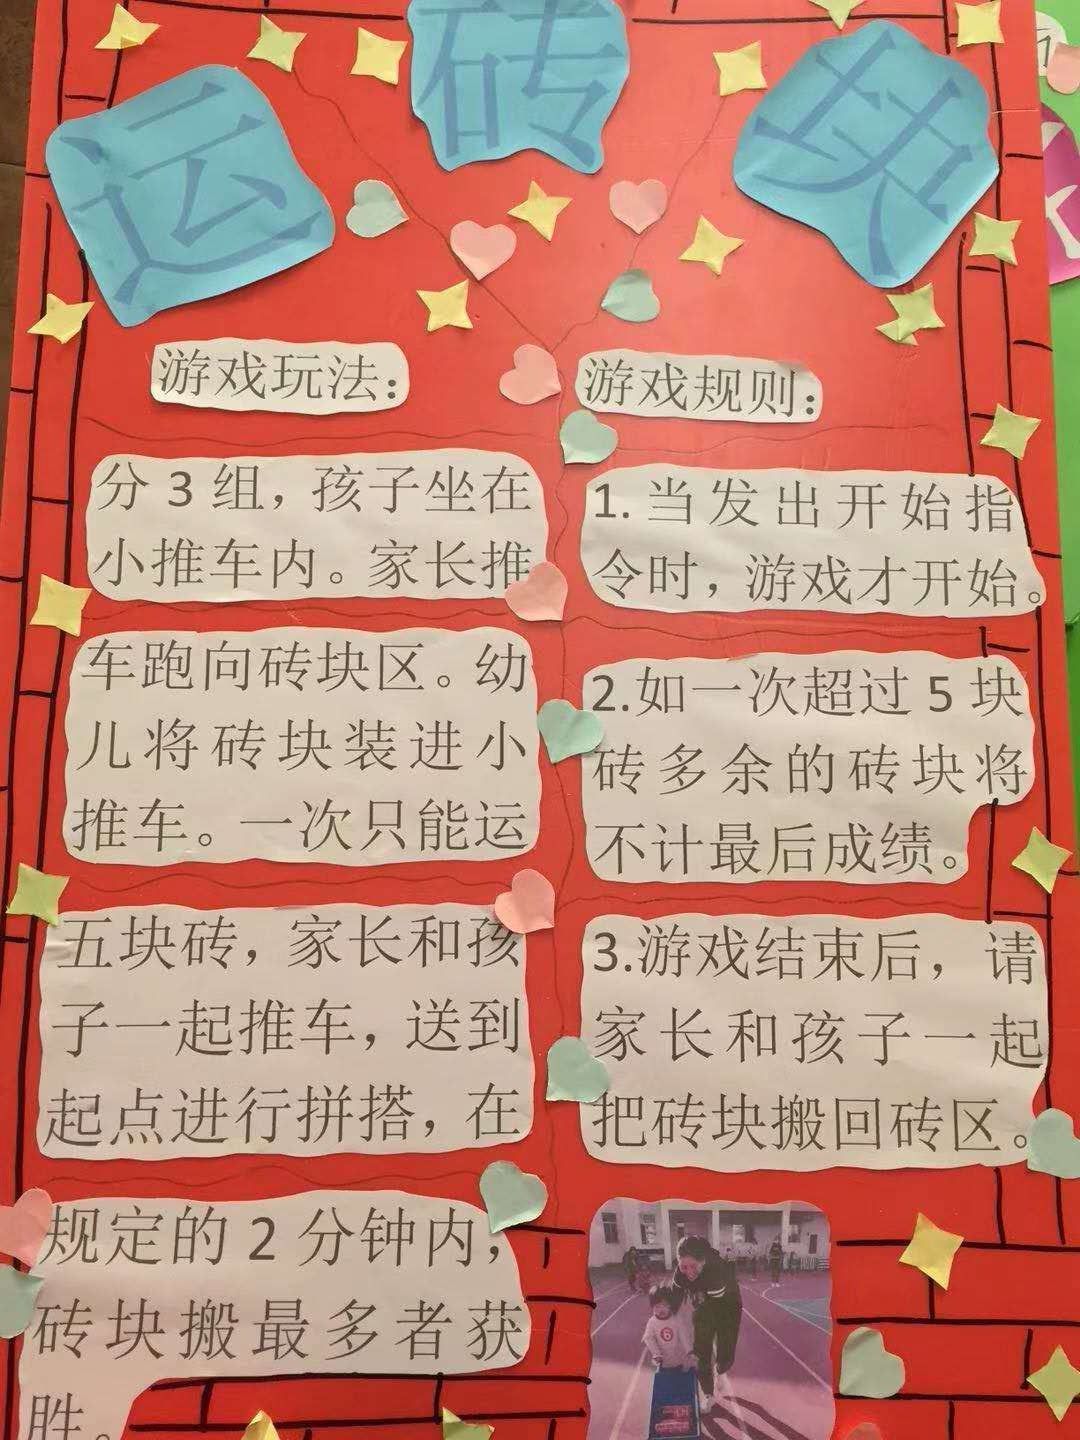 运砖块
游戏玩法：
分 3 组，孩子坐在
小推车内。家长推
车跑向砖块区。幼
儿将砖块装进小
推车。一次只能运
五块砖，家长和孩
子一起推车，送到
起点进行拼搭，在
规定的 2 分钟内，
砖块搬最多者获
胜。
游戏规则：
1. 当发出开始指
令时，游戏才开始。
2.如一次超过 5 块
砖多余的砖块将
不计最后成绩。
3.游戏结束后，请
家长和孩子一起
把砖块搬回砖区。
6